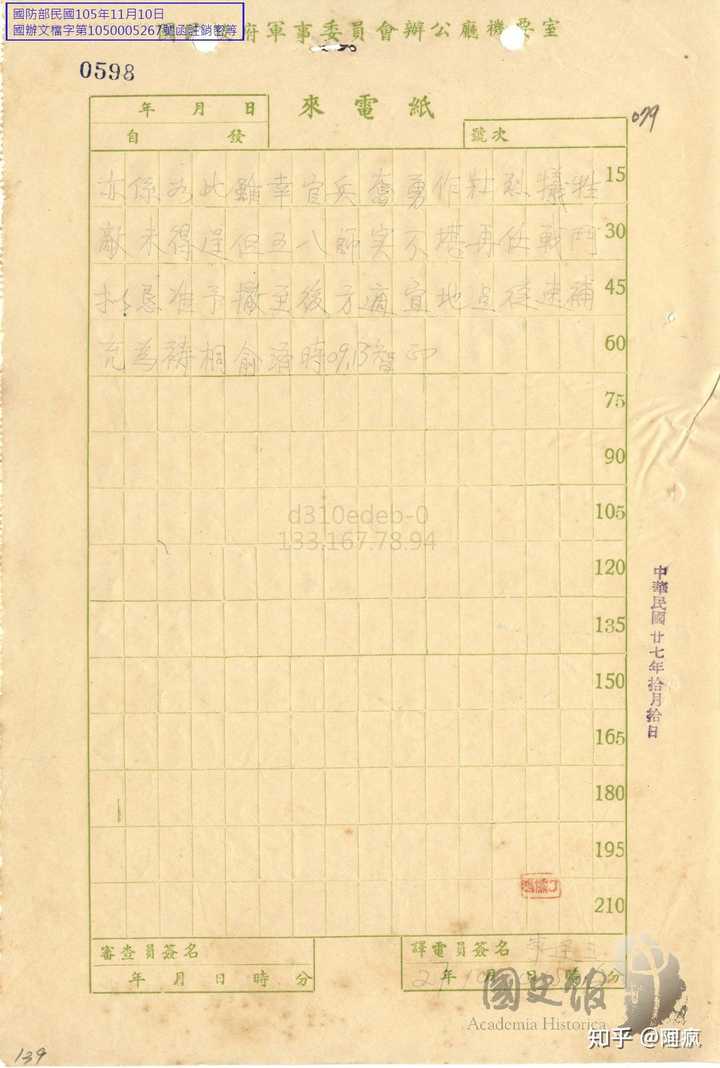 國防部民國105年11月10日
國辦文檔字第1050005267號函註銷密等
府軍事委員會辦公廳機要室
0598
年 月 日
來電紙
自 發
號次
079
亦係如此雖幸官兵奮勇作壯烈犧牲
15
敵未得逞但五八師実不堪再任戰鬥
30
擬懇准予撤至後方適宜地点從速補
45
充為禱桐俞濟時09.13智印
60
75
90
105
d310edeb-0
133.167.78.94
120
135
150
165
180
195
210
中華民國廿七年拾月拾日
審查員簽名
年 月 日 時 分
譯電員簽名
27年 10 日 分
國史館
Academia Historica
知乎 @阻疯
139